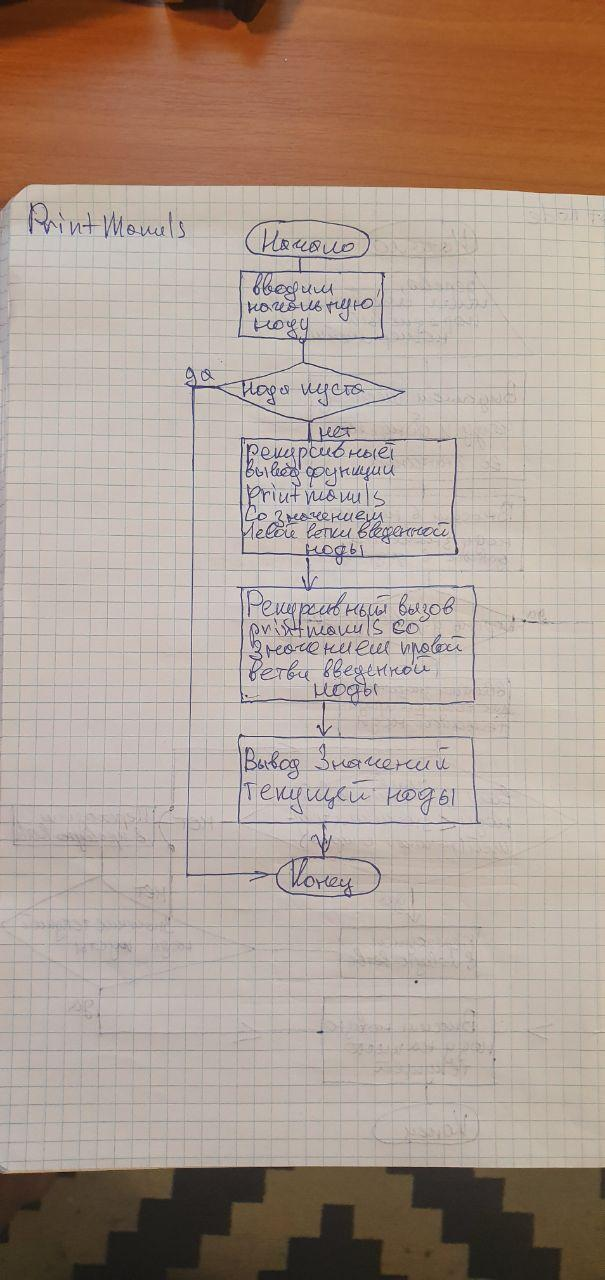 Print Manuls
Начало
вводим
начальную
ноду
да
нода пуста
нет
рекурсивный
вывод функции
printmanuls
Со значением
левой ветки введенной
ноды
Рекурсивный вызов
printmanuls со
значением правой
ветви введенной
ноды
Вывод значений
текущей ноды
Конец